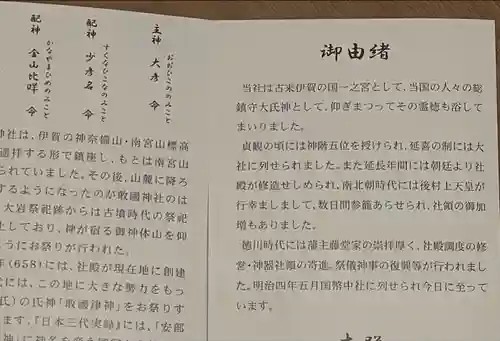 主神 大彦 命
おおびこのみこと
配神 少彦名 命
すくなひこなのみこと
配神 金山比咩 命
かなやまひめのみこと
神社は、伊賀の神奈備山・南宮山標高
遥拝する形で鎮座し、もとは南宮山
られていました。その後、山麓に降ろ
するようになったのが敢國神社のは
大岩祭祀跡からは古墳時代の祭祀
土しており、神が宿る御神体山を仰
ようにお祭りが行われた。
年(658)には、社殿が現在地に創建
代には、この地に大きな勢力をもっ
氏)の氏神「敢國津神」をお祭りす
ます。『日本三代実録』には、「安部
御由緒
当社は古来伊賀の国一之宮として,当国の人々の総
鎮守大氏神として,仰ぎまつってその霊徳も浴して
まいりました。
貞観の頃には神階五位を授けられ,延喜の制には大
社に列せられました。また延長年間には朝廷より社
殿が修造せしめられ,南北朝時代には後村上天皇が
行幸しまして,数日間参籠あらせられ,社領の御加
増もありました。
徳川時代には藩主藤堂家の崇拝厚く,社殿調度の修
営・神器社領の寄進。祭儀神事の復興等が行われまし
た。明治四年五月国幣中社に列せられ今日に至って
います。